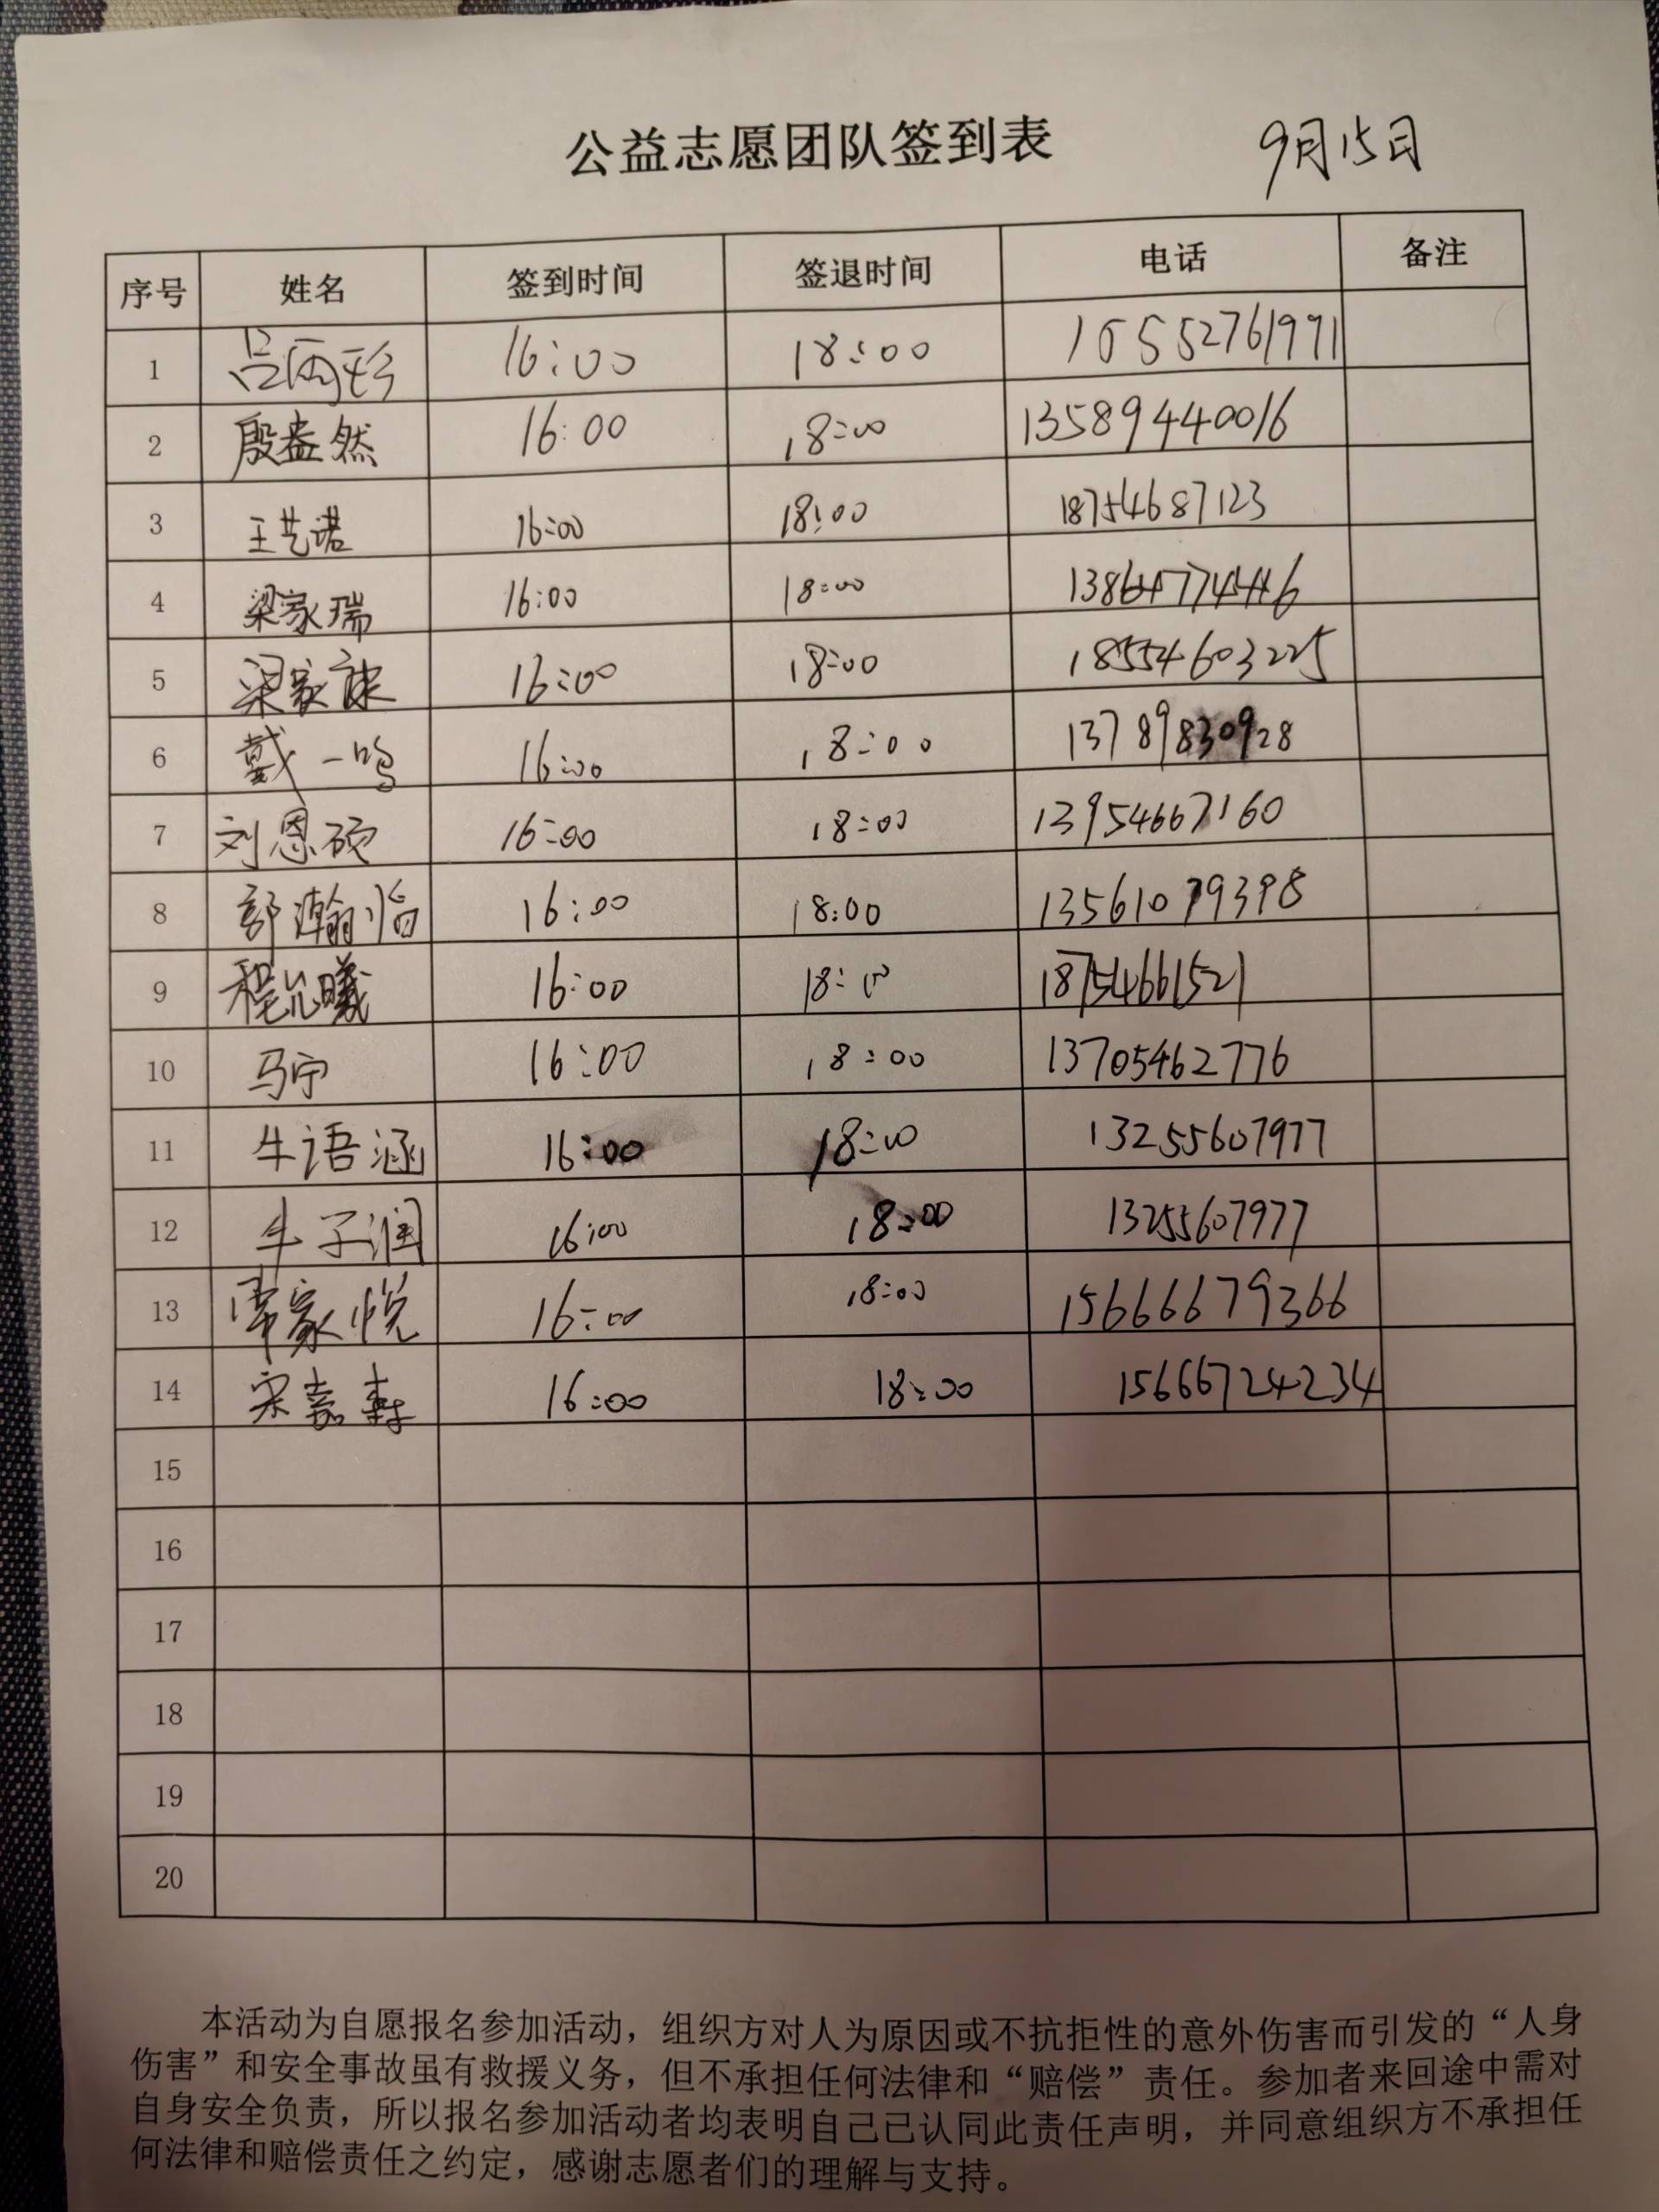 公益志愿团队签到表 9月15日
序号 姓名 签到时间 签退时间 电话 备注
1 吕雨彤 16:00 18:00 15552761971
2 殷益然 16:00 18:00 13589440016
3 王艺诺 16:00 18:00 18754687123
4 梁家瑞 16:00 18:00
5 梁家 16:00 18:00 18554603225
6 戴一鸣 16:00 18:00 13789830928
7 刘恩硕 16:00 18:00 13954667160
8 郭瀚 16:00 18:00 13561079398
9 程允曦 16:00 18:00 18754661521
10 马宁 16:00 18:00 13705462776
11 牛语涵 16:00 18:00 13255607977
12 牛子润 16:00 18:00 13255607977
13 常家悦 16:00 18:00 15666679366
14 宋嘉 16:00 18:00 15666724234
15
16
17
18
19
20
本活动为自愿报名参加活动，组织方对人为原因或不抗拒性的意外伤害而引发的“人身
伤害”和安全事故虽有救援义务，但不承担任何法律和“赔偿”责任。参加者来回途中需对
自身安全负责，所以报名参加活动者均表明自己已认同此责任声明，并同意组织方不承担任
何法律和赔偿责任之约定，感谢志愿者们的理解与支持。